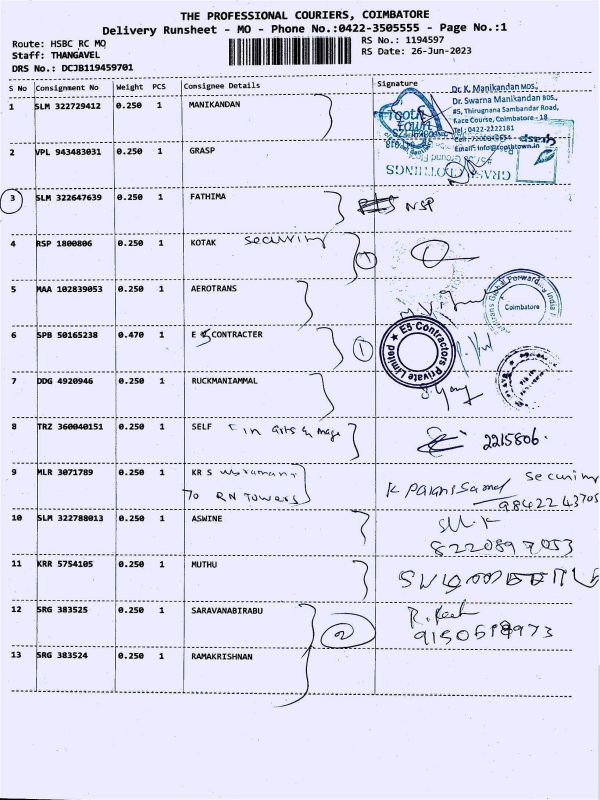 THE PROFESSIONAL COURIERS, COIMBATORE
Delivery Runsheet - MO - Phone No.:0422-3505555 - Page No.:1
Route: HSBC RC MO
RS No.: 1194597
Staff: THANGAVEL
RS Date: 26-Jun-2023
DRS No.: DCJB119459701
S No Consignment No Weight PCS Consignee Details Signature
1 SLM 322729412 0.250 1 MANIKANDAN
Dr. K. Manikandan MDS.,
Dr. Swarna Manikandan BDS.,
#5, Thirugnana Sambandar Road,
Race Course, Coimbatore - 18
Tel : 0422-2222181
Email: info@toothtown.in
Tooth Town
2 VPL 943483031 0.250 1 GRASP
grasp
GRASP CLOTHINGS
3 SLM 322647639 0.250 1 FATHIMA
NSP
4 RSP 1800806 0.250 1 KOTAK security
1
5 MAA 102839053 0.250 1 AEROTRANS
Coimbatore
6 SPB 50165238 0.470 1 E S CONTRACTER
1
E5 Contractors Private Limited
7 DDG 4920946 0.250 1 RUCKMANIAMMAL
8 TRZ 360040151 0.250 1 SELF
2215806.
9 MLR 3071789 0.250 1 KR Subramani
70 RN Towers
K Palanisamy security
9842243705
10 SLM 322788013 0.250 1 ASWINE
8220897053
11 KRR 5754105 0.250 1 MUTHU
12 SRG 383525 0.250 1 SARAVANABIRABU
2
13 SRG 383524 0.250 1 RAMAKRISHNAN